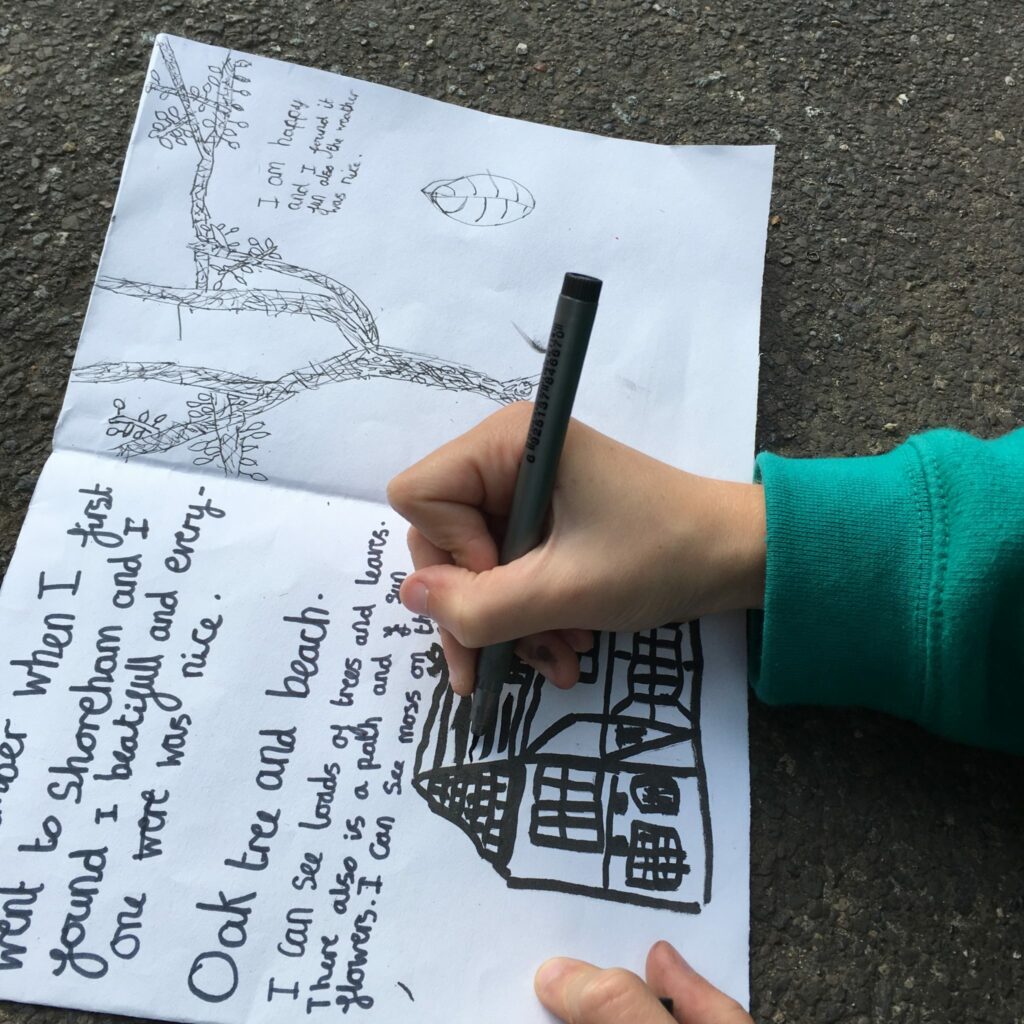 when I first
went to Shoreham and I
found I beatifull and every-
one were was nice.
Oak tree and beach.
I can see loads of trees and leaves.
There also is a path and y sun
flowers. I can see moss on th
I am happy
and I found it
fun also the weather
was nice.